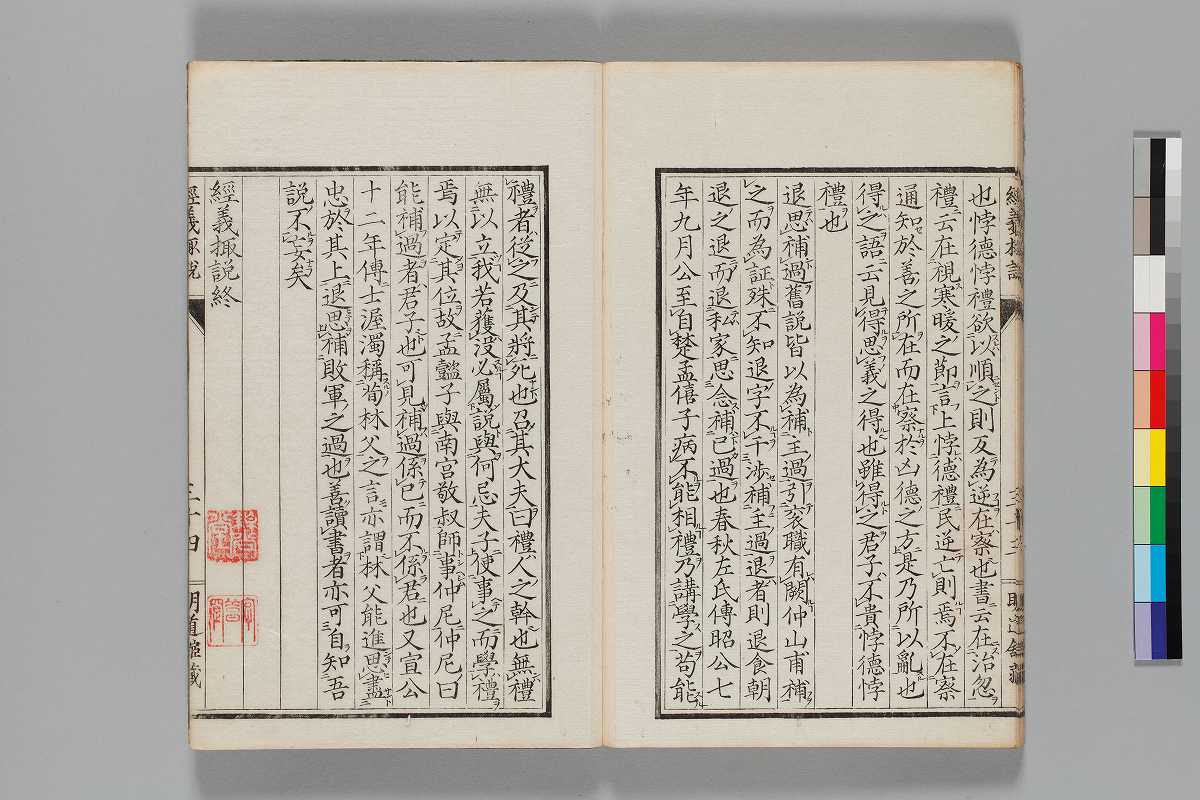 也悖德悖禮欲以順之則反為逆在察也書云在治忽
禮云在視寒暖之節言上悖德禮民逆亡則焉不在察
通知於善之所在而在察於凶德之方是乃所以亂也
得之語云見得思義之得也雖得之君子不貴悖德悖
禮也
退思補過舊說皆以為補主過引袞職有闕仲山甫補
之而為証殊不知退字不干涉補主過退者則退食朝
退之退而退私家思念補己過也春秋左氏傳昭公七
年九月公至自楚孟僖子病不能相禮乃講學之苟能
禮者從之及其將死也召其大夫曰禮人之幹也無禮
無以立我若獲沒必屬說與何忌夫子使事之而學禮
焉以定其位故孟懿子與南宮敬叔師事仲尼仲尼曰
能補過者君子也可見補過係己而不係君也又宣公
十二年傳士渥濁稱荀林父之言亦謂林父能進思盡
忠於其上退思補敗軍之過也善讀書者亦可自知吾
說不妄矣
經義掫說終
經義掫說
三十四
明道館藏